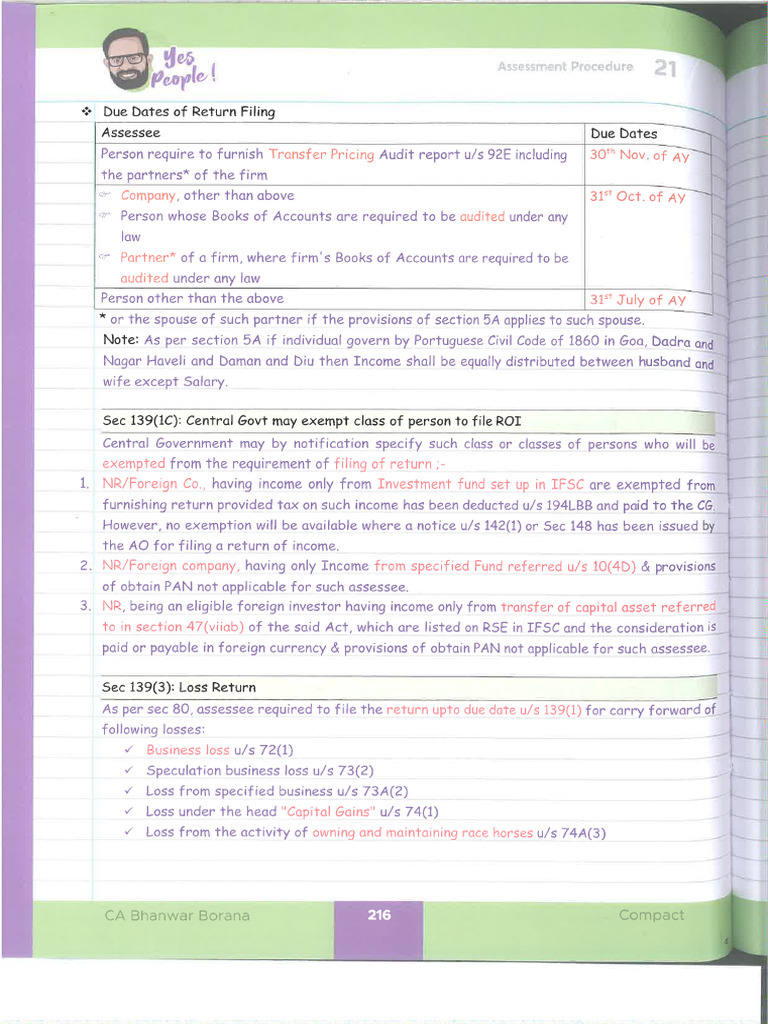 Yes
People!
Assessment Procedure 21
❖ Due Dates of Return Filing
Assessee Due Dates
Person require to furnish Transfer Pricing Audit report u/s 92E including 30th Nov. of AY
the partners* of the firm
☞ Company, other than above 31st Oct. of AY
☞ Person whose Books of Accounts are required to be audited under any
law
☞ Partner* of a firm, where firm's Books of Accounts are required to be
audited under any law
Person other than the above 31st July of AY
* or the spouse of such partner if the provisions of section 5A applies to such spouse.
Note: As per section 5A if individual govern by Portuguese Civil Code of 1860 in Goa, Dadra and
Nagar Haveli and Daman and Diu then Income shall be equally distributed between husband and
wife except Salary.
Sec 139(1C): Central Govt may exempt class of person to file ROI
Central Government may by notification specify such class or classes of persons who will be
exempted from the requirement of filing of return ;-
1. NR/Foreign Co., having income only from Investment fund set up in IFSC are exempted from
furnishing return provided tax on such income has been deducted u/s 194LBB and paid to the CG.
However, no exemption will be available where a notice u/s 142(1) or Sec 148 has been issued by
the AO for filing a return of income.
2. NR/Foreign company, having only Income from specified Fund referred u/s 10(4D) & provisions
of obtain PAN not applicable for such assessee.
3. NR, being an eligible foreign investor having income only from transfer of capital asset referred
to in section 47(viiab) of the said Act, which are listed on RSE in IFSC and the consideration is
paid or payable in foreign currency & provisions of obtain PAN not applicable for such assessee.
Sec 139(3): Loss Return
As per sec 80, assessee required to file the return upto due date u/s 139(1) for carry forward of
following losses:
✓ Business loss u/s 72(1)
✓ Speculation business loss u/s 73(2)
✓ Loss from specified business u/s 73A(2)
✓ Loss under the head "Capital Gains" u/s 74(1)
✓ Loss from the activity of owning and maintaining race horses u/s 74A(3)
CA Bhanwar Borana 216 Compact